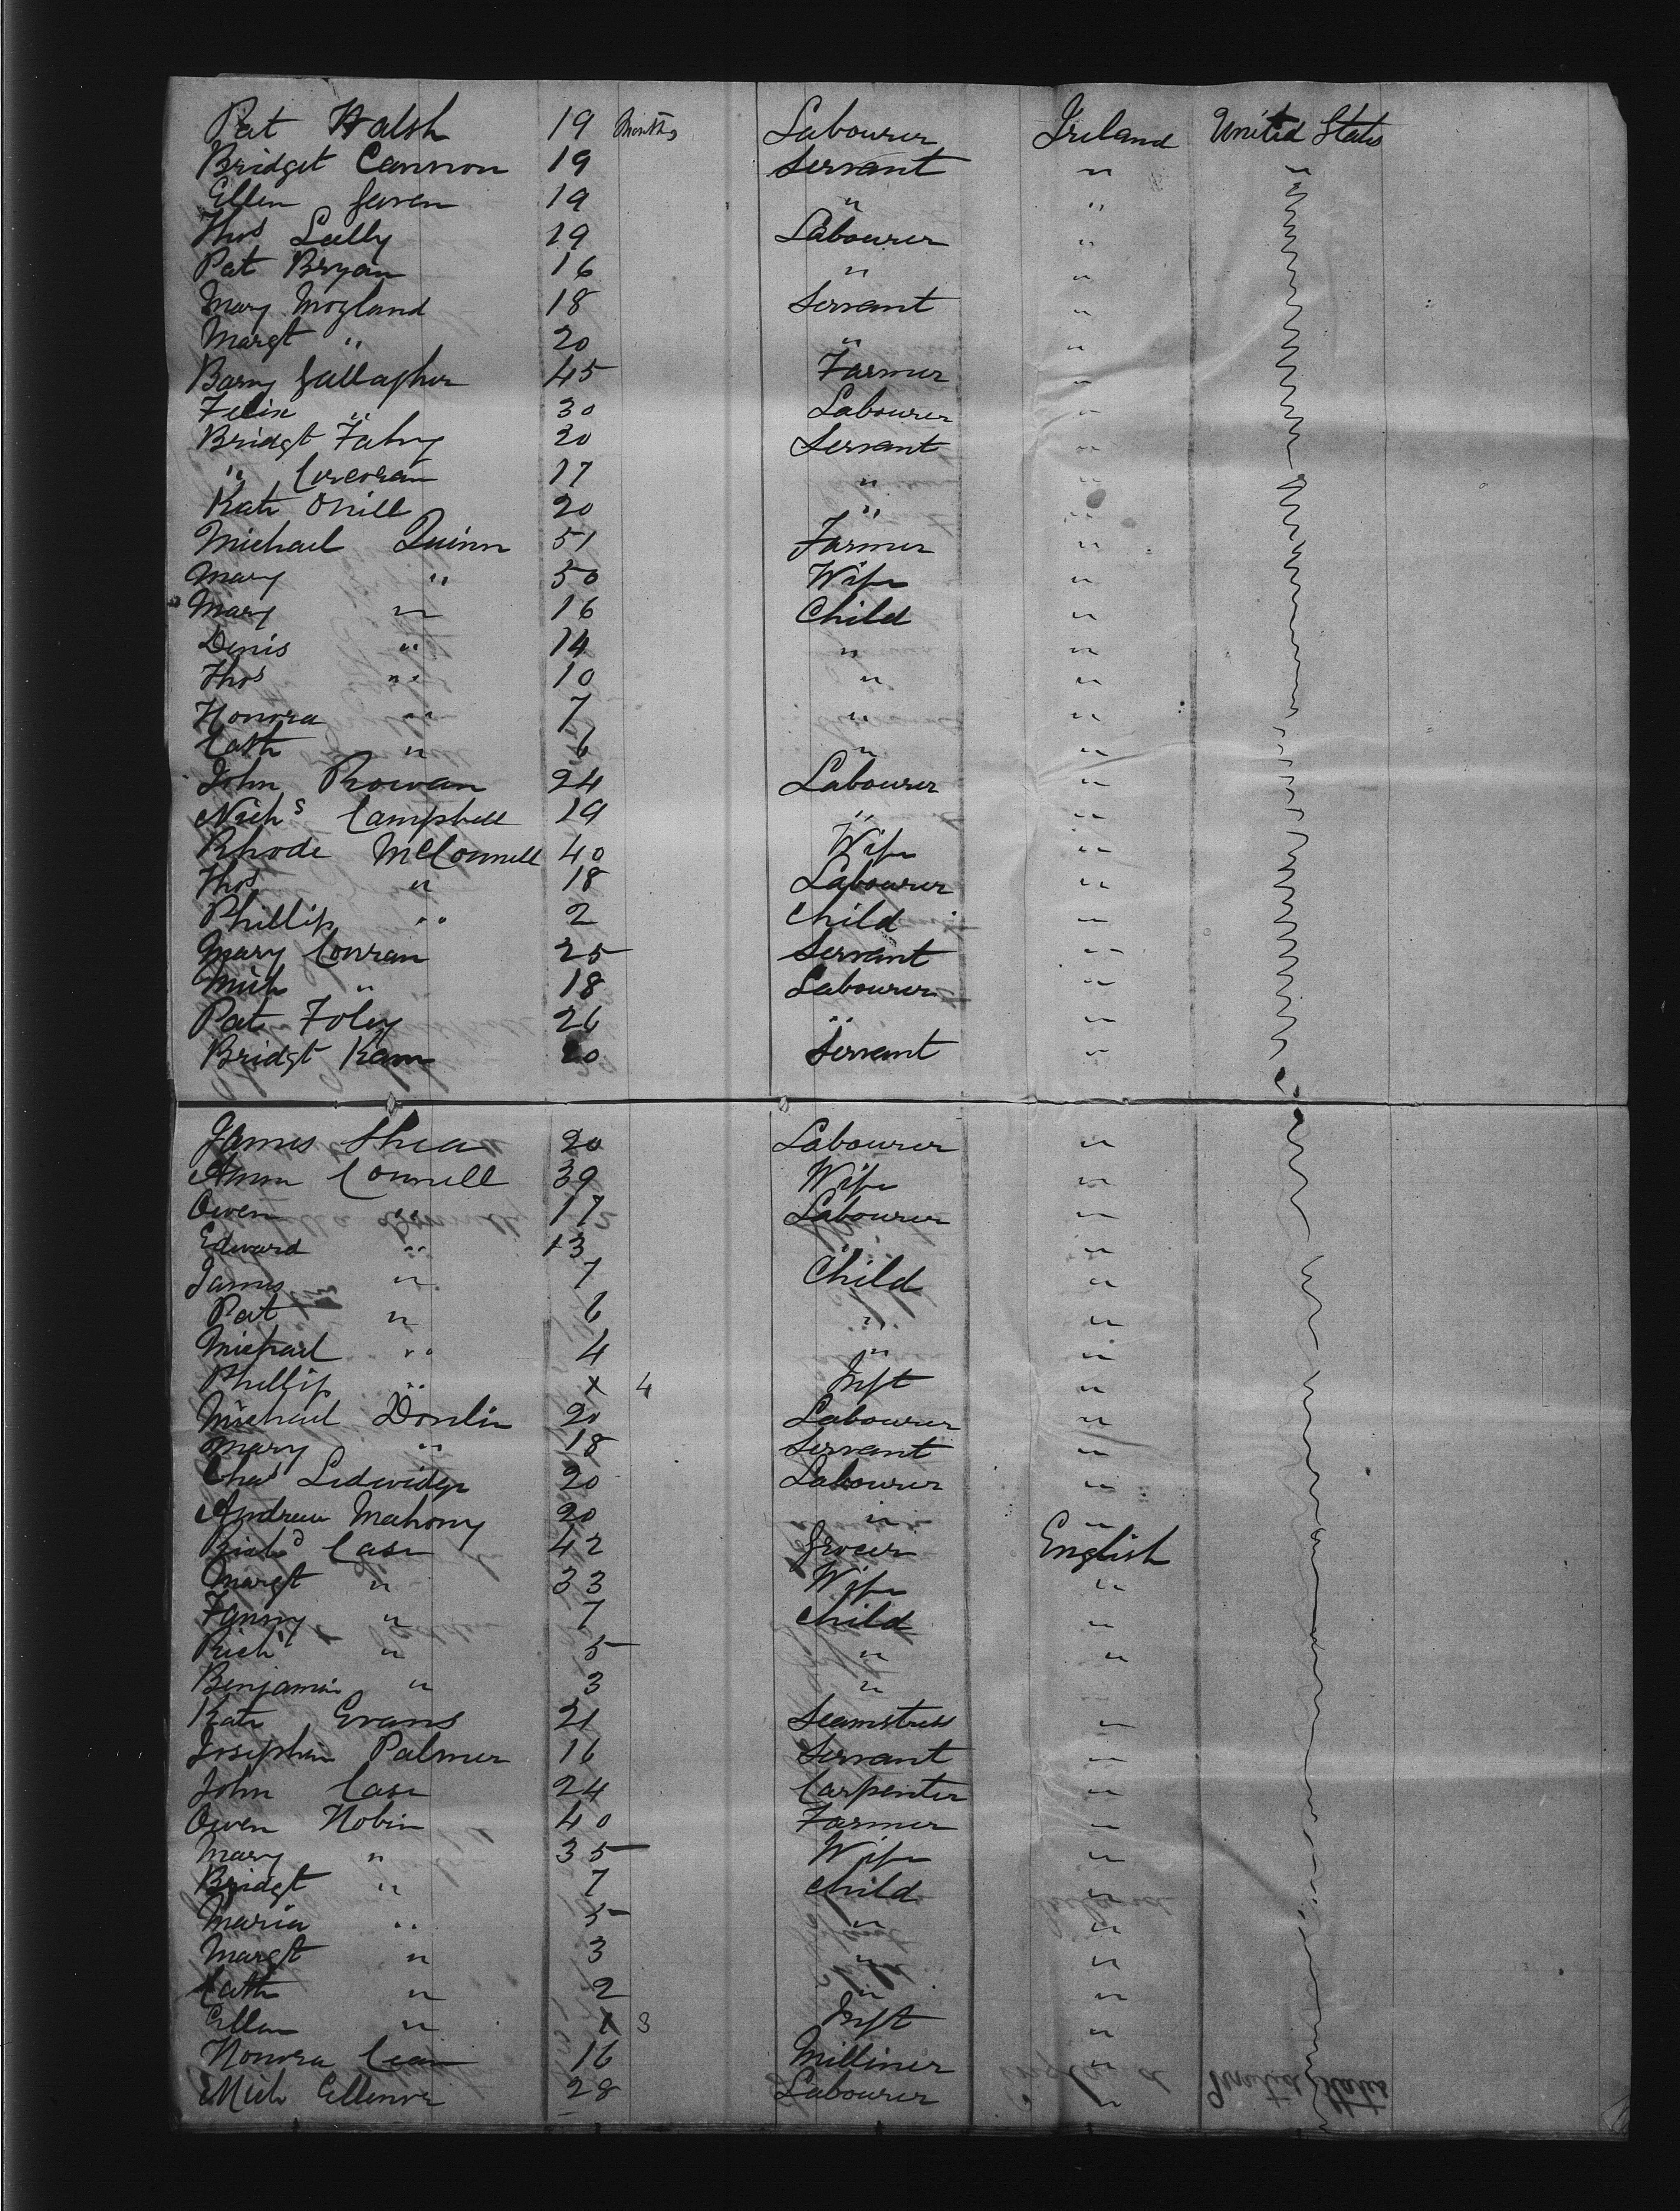 Pat Walsh 19 Months Labourer Ireland United States
Bridget Cannon 19 Servant " "
Ellen Gaven 19 " "
Thos Lally 19 Labourer "
Pat Bryan 16 " "
Mary Mogland 18 Servant "
Margt " 20 " "
Barny Gallagher 45 Farmer "
Felix " 30 Labourer "
Bridgt Fahy 20 Servant "
" Corcoran 17 " "
Kate ONill 20 " "
Michael Quinn 51 Farmer "
Mary " 50 Wife "
Mary " 16 Child "
Denis " 14 " "
Thos " 10 " "
Honora " 7 " "
Cath " 6 " "
John Rowan 24 Labourer "
Nichs Campbell 19 " "
Rhode McConnell 40 Wife "
Thos " 18 Labourer "
Phillip " 2 Child "
Mary Conran 25 Servant "
Mich " 18 Labourer "
Pat Foley 26 " "
Bridgt Kam 20 Servant "
James Shea 20 Labourer "
Ann Connell 39 Wife "
Owen " 17 Labourer "
Edward " 13 " "
James " 7 Child "
Pat " 6 " "
Michael " 4 " "
Phillip " x 4 Inft "
Michael Donlin 20 Labourer "
Mary " 18 Servant "
Chas Ledwidge 20 Labourer "
Andrew Mahony 20 " "
Richd Case 42 Grocer English
Margt " 33 Wife "
Fanny " 7 Child "
Richd " 5 " "
Benjamin " 3 "
Kate Evans 21 Seamstress "
Josephin Palmer 16 Servant "
John Case 24 Carpenter "
Owen Nobin 40 Farmer "
Mary " 35 Wife "
Bridgt " 7 Child "
Maria " 5 " "
Margt " 3 " "
Cath " 2 " "
Ellen " x 3 Inft "
Honora 16 Milliner "
Mich 28 Labourer "